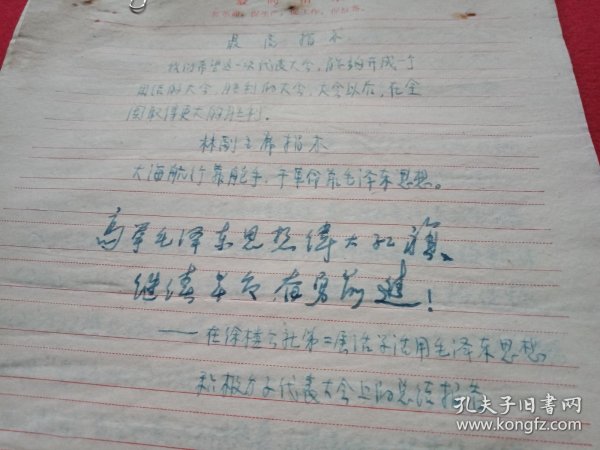 最高指示
抓革命,促生产,促工作,促战备。
最高指示
我们希望这一次代表大会,能够开成一个
团结的大会,胜利的大会,大会以后,在全
国取得更大的胜利。
林副主席指示
大海航行靠舵手,干革命靠毛泽东思想。
高举毛泽东思想伟大红旗、
继续革命奋勇前进!
——在徐桂公社第二届活学活用毛泽东思想
积极分子代表大会上的总结报告
孔夫子旧书网
www.kongfz.com